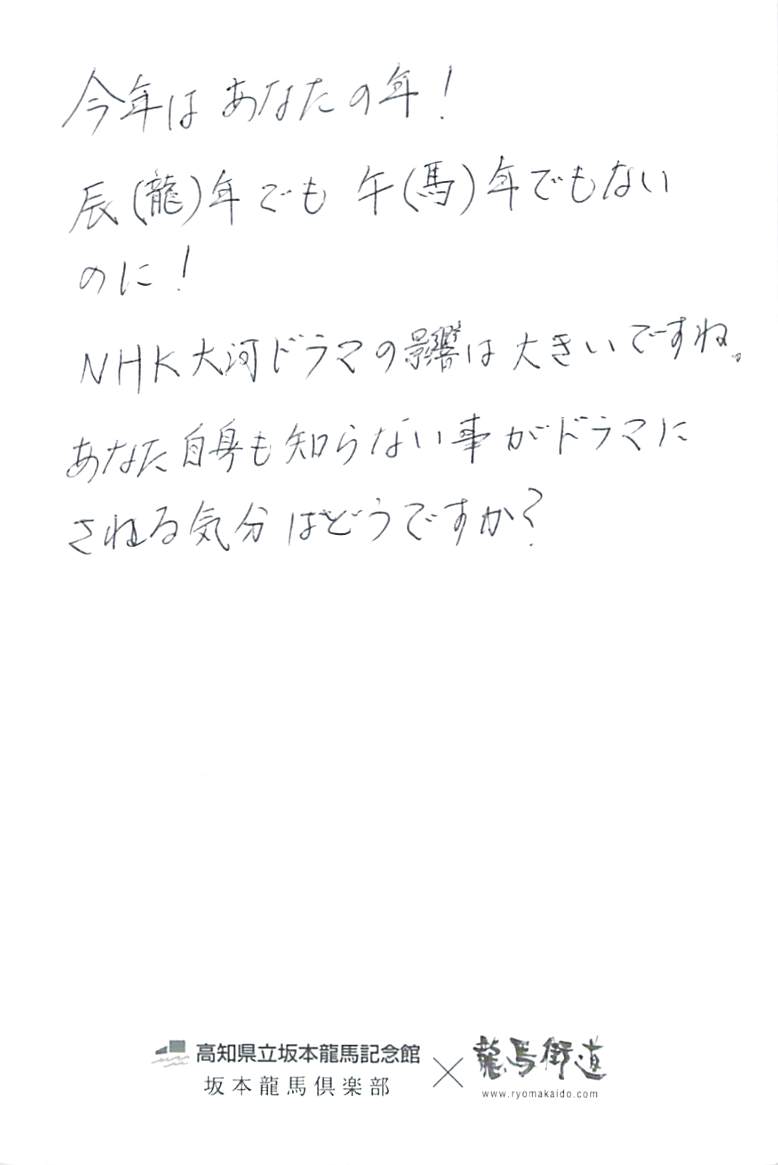 今年は あなたの年！
辰(龍)年でも 午(馬)年でもない
のに！
NHK大河ドラマの影響は大きいですね。
あなた自身も知らない事がドラマに
される気分はどうですか？
高知県立坂本龍馬記念館
坂本龍馬倶楽部
×
龍馬街道
www.ryomakaido.com